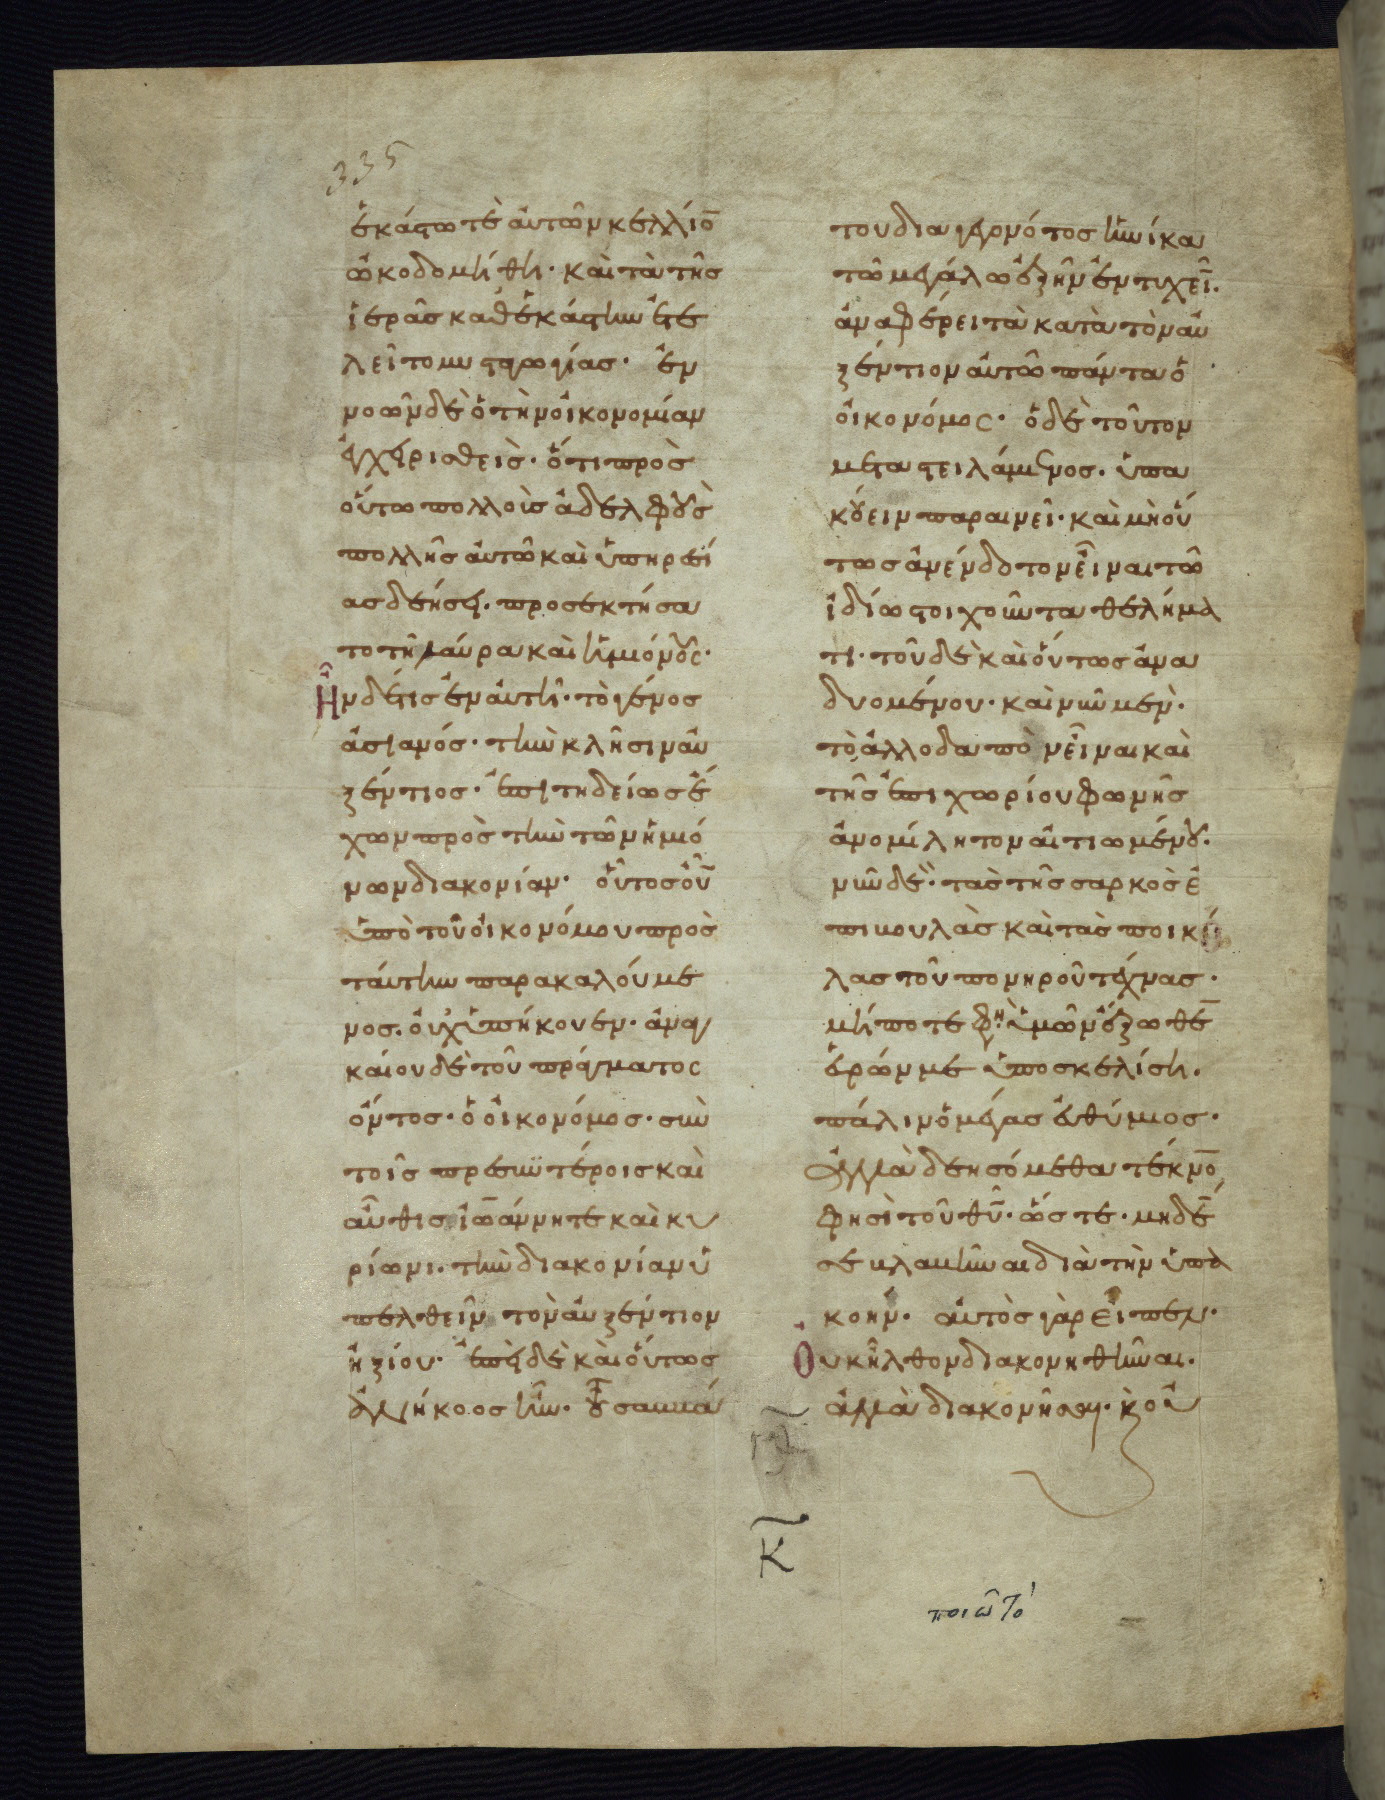 335
ἑκάστω τὲ αὐτῶν κελλίο̅
ὠκοδομήθη· καὶ τὰ τῆς
ἱερᾶς καθ' ἑκάστην ἐτε
λεῖτο μυσταγωγίας· ἐν
νοῶν δὲ ὁ τὴν οἰκονομίαν
ἐγχειρισθεὶς· ὅτι πρὸς
οὕτω πολλοὺς ἀδελφοὺς
πολλῆς αὐτῶ καὶ ὑπηρεσί
ας δεήσει· προσεκτήσα
το τῆ λαύρα καὶ ἡμιόνους·
Ἦν δέ τις ἐν αὐτῆ· τὸ γένος
ἀσιανός· τὴν κλῆσιν αὐ
ξέντιος· ἐπιτηδείως ἔ
χων πρὸς τὴν τῶν ἡμιό
νων διακονίαν· οὗτος οὖν
ὑπὸ τοῦ οἰκονόμου πρὸς
ταύτην παρακαλούμε
νος. οὐχ ὑπήκουεν· ἀναγ
καίου δὲ τοῦ πράγματος
ὄντος· ὁ οἰκονόμος· σὺν
τοῖς πρεσβυτέροις καὶ
αὖθις ἰω̅άννη τε καὶ κυ
ρίωνι· τὴν διακονίαν ὑ
πελθεῖν τὸν αὐξέντιον
ἠξίου· ἐπεὶ δὲ καὶ οὕτως
ἀνήκοος ἦν· τοῦ σαββά
του διαγεγονότος ἡνίκα
τῶ μεγάλω ἐξῆν ἐντυχεῖν.
ἀναφέρει τὰ κατὰ τὸν αὐ
ξέντιον αὐτῶ πάντα ὁ
οἰκονόμος· ὁ δὲ τοῦτον
μεταστειλάμενος· ὑπα
κούειν παραινεῖ· καὶ μὴ οὕ
τως ἀνένδοτον εἶναι τῶ
ἰδίω στοιχοῦντα θελήμα
τι· τοῦ δὲ καὶ οὕτως ἀνα
δυομένου· καὶ νῦν μὲν·
τὸ ἀλλοδαπὸν εἶναι καὶ
τῆς ἐπιχωρίου φωνῆς
ἀνομίλητον αἰτιωμένου·
νῦν δὲ· τὰς τῆς σαρκὸς ἐ
πιβουλὰς καὶ τὰς ποικί
λας τοῦ πονηροῦ τέχνας·
μήποτε φη ὑμῶν ἔξωθεν
εὑρών με ὑποσκελίση·
πάλιν ὁ μέγας εὐθύμιος·
Ἀλλὰ δεησόμεθα τέκνον
φησὶ τοῦ θυ̅· ὥστε· μηδέν
σε βλαβῆναι διὰ τὴν ὑπα
κοήν· αὐτὸς γὰρ εἶπεν·
Οὐκ ἦλθον διακονηθῆναι·
ἀλλὰ διακονῆσαι· κ οὐ
κ̅
ποιῶ το